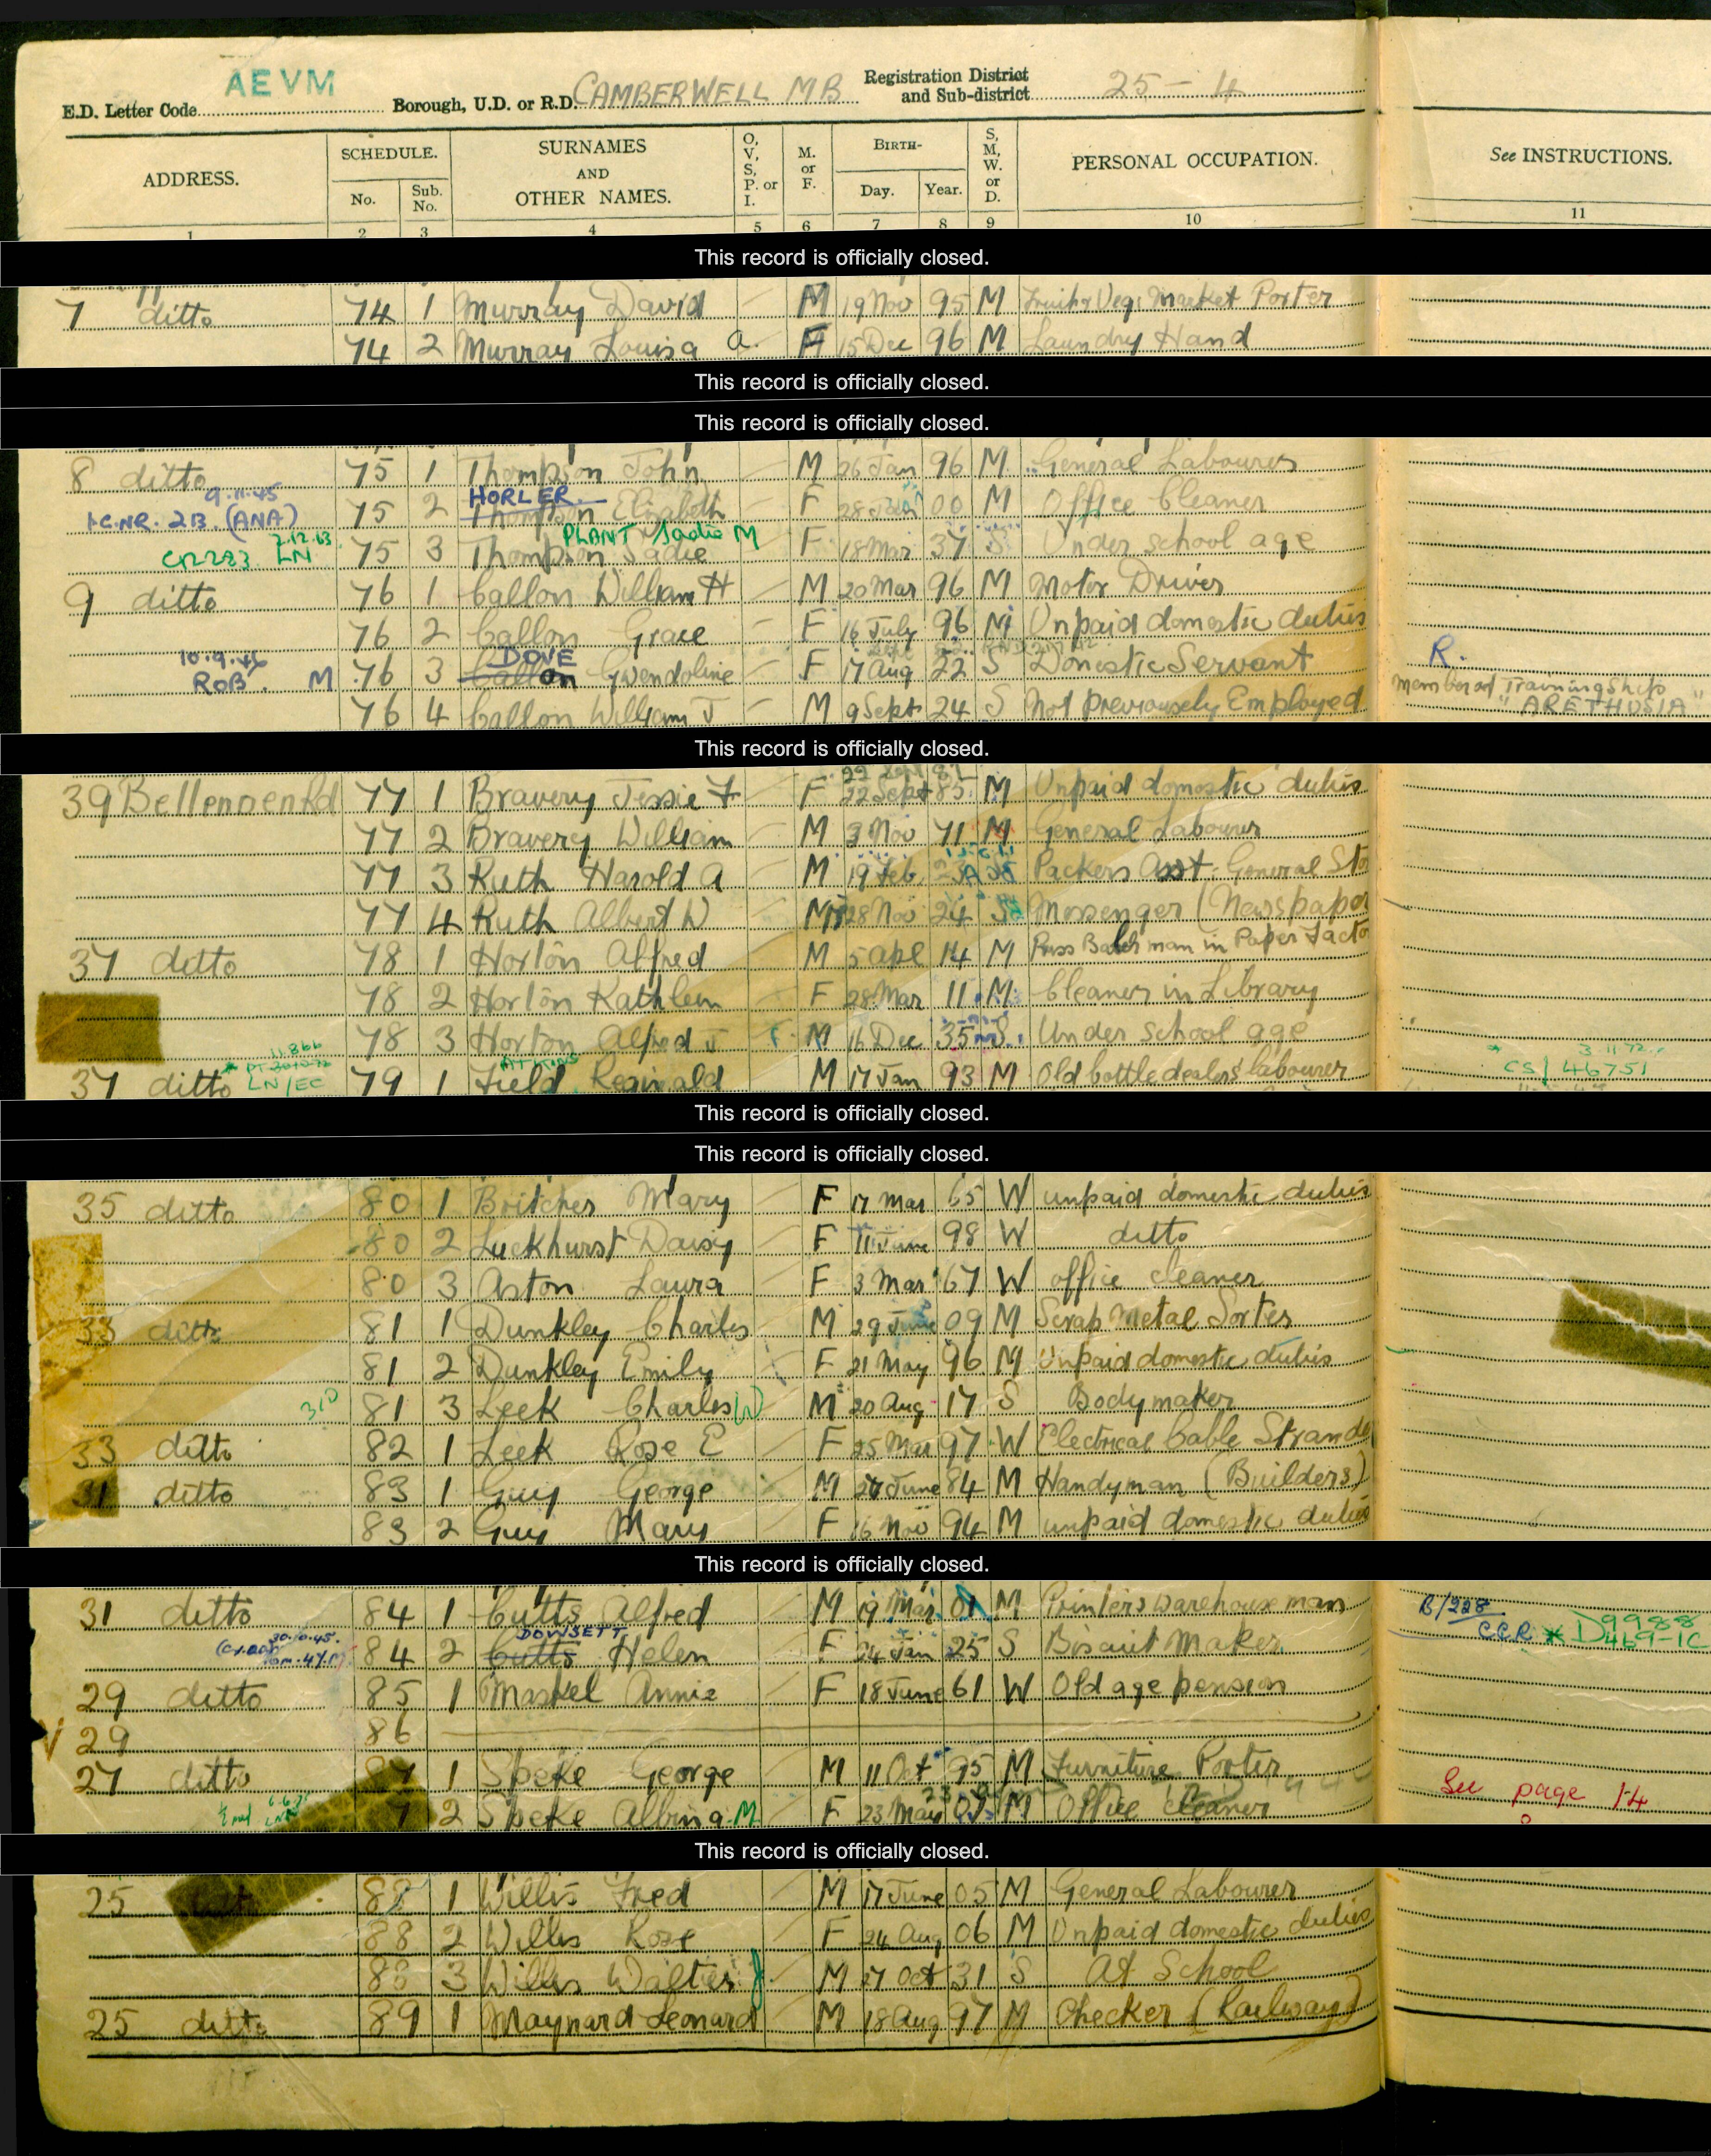 AEVM
E.D. Letter Code
Borough, U.D. or R.D. CAMBERWELL MB
Registration District and Sub-district 25-4
ADDRESS. SCHEDULE. No. Sub. No. SURNAMES AND OTHER NAMES. O, V, S, P. or I. M. or F. BIRTH- Day. Year. S, M, W. or D. PERSONAL OCCUPATION. See INSTRUCTIONS.
1 2 3 4 5 6 7 8 9 10 11
This record is officially closed.
7 ditto 74 1 Murray David — M 19 Nov 95 M Fruit & Veg. Market Porter
74 2 Murray Louisa A. F 15 Dec 96 M Laundry Hand
This record is officially closed.
This record is officially closed.
8 ditto 75 1 Thompson John — M 26 Jan 96 M General Labourer
9.11.45 HORLER
NR. 2B. (ANA) 75 2 Thompson Elizabeth F 28 Jan 00 M Office Cleaner
2.12.63 PLANT Sadie M
LN 75 3 Thompson Sadie F 18 Mar 37 S Under school age
9 ditto 76 1 Callon William H — M 20 Mar 96 M Motor Driver
76 2 Callon Grace — F 16 July 96 M Unpaid domestic duties
10.9.46 DOVE
ROB. M 76 3 Callon Gwendoline — F 17 Aug 22 S Domestic Servant R.
76 4 Callon William J — M 9 Sept 24 S Not previousely Employed Member of Training Ship "ARETHUSIA"
This record is officially closed.
39 Bellenden Rd 77 1 Bravery Jessie F — F 22 Sept 85 M Unpaid domestic duties
77 2 Bravery William — M 3 Nov 71 M General Labourer
77 3 Ruth Harold A M 19 Feb Packers Asst. General Sto
77 4 Ruth Albert W M 28 Nov 24 S Messenger (Newspaper
37 ditto 78 1 Horton Alfred M 5 Apl 14 M Press Batch man in Paper Facto
78 2 Horton Kathleen — F 28 Mar 11 M Cleaner in Library
78 3 Horton Alfred J M 16 Dec 35 S Under school age
37 ditto LN/EC 79 1 Field Reginald M 17 Jan 93 M Old bottle dealers labourer CS/46751
This record is officially closed.
This record is officially closed.
35 ditto 80 1 Britcher Mary — F 17 Mar 65 W unpaid domestic duties
80 2 Luckhurst Daisy F 11 June 98 W ditto
80 3 Aston Laura — F 3 Mar 67 W office cleaner
33 ditto 81 1 Dunkley Charles M 29 June 09 M Scrap Metal Sorter
81 2 Dunkley Emily F 21 May 96 M Unpaid domestic duties
310 81 3 Leek Charles W M 20 Aug 17 S Bodymaker
33 ditto 82 1 Leek Rose E F 25 Mar 97 W Electrical Cable Strander
31 ditto 83 1 Guy George M 24 June 84 M Handyman (Builders)
83 2 Guy Mary F 16 Nov 94 M unpaid domestic duties
This record is officially closed.
31 ditto 84 1 Cutts Alfred — M 19 Mar 01 M Printers Warehouseman B/228
30.10.45. DOWSETT CCR D469-1C 9988
84 2 Cutts Helen F 24 Jan 25 S Biscuit Maker
29 ditto 85 1 Maskel Annie F 18 June 61 W Old age pension
29 86
27 ditto 87 1 Speke George M 11 Oct 95 M Furniture Porter
7 2 Speke Albina M F 23 May M Office Cleaner See page 14
This record is officially closed.
25 ditto 88 1 Willis Fred — M 17 June 05 M General Labourer
88 2 Willis Rose — F 24 Aug 06 M Unpaid domestic duties
88 3 Willis Walter J M 17 Oct 31 S At School
25 ditto 89 1 Maynard Leonard M 18 Aug 97 M Checker (Railway)